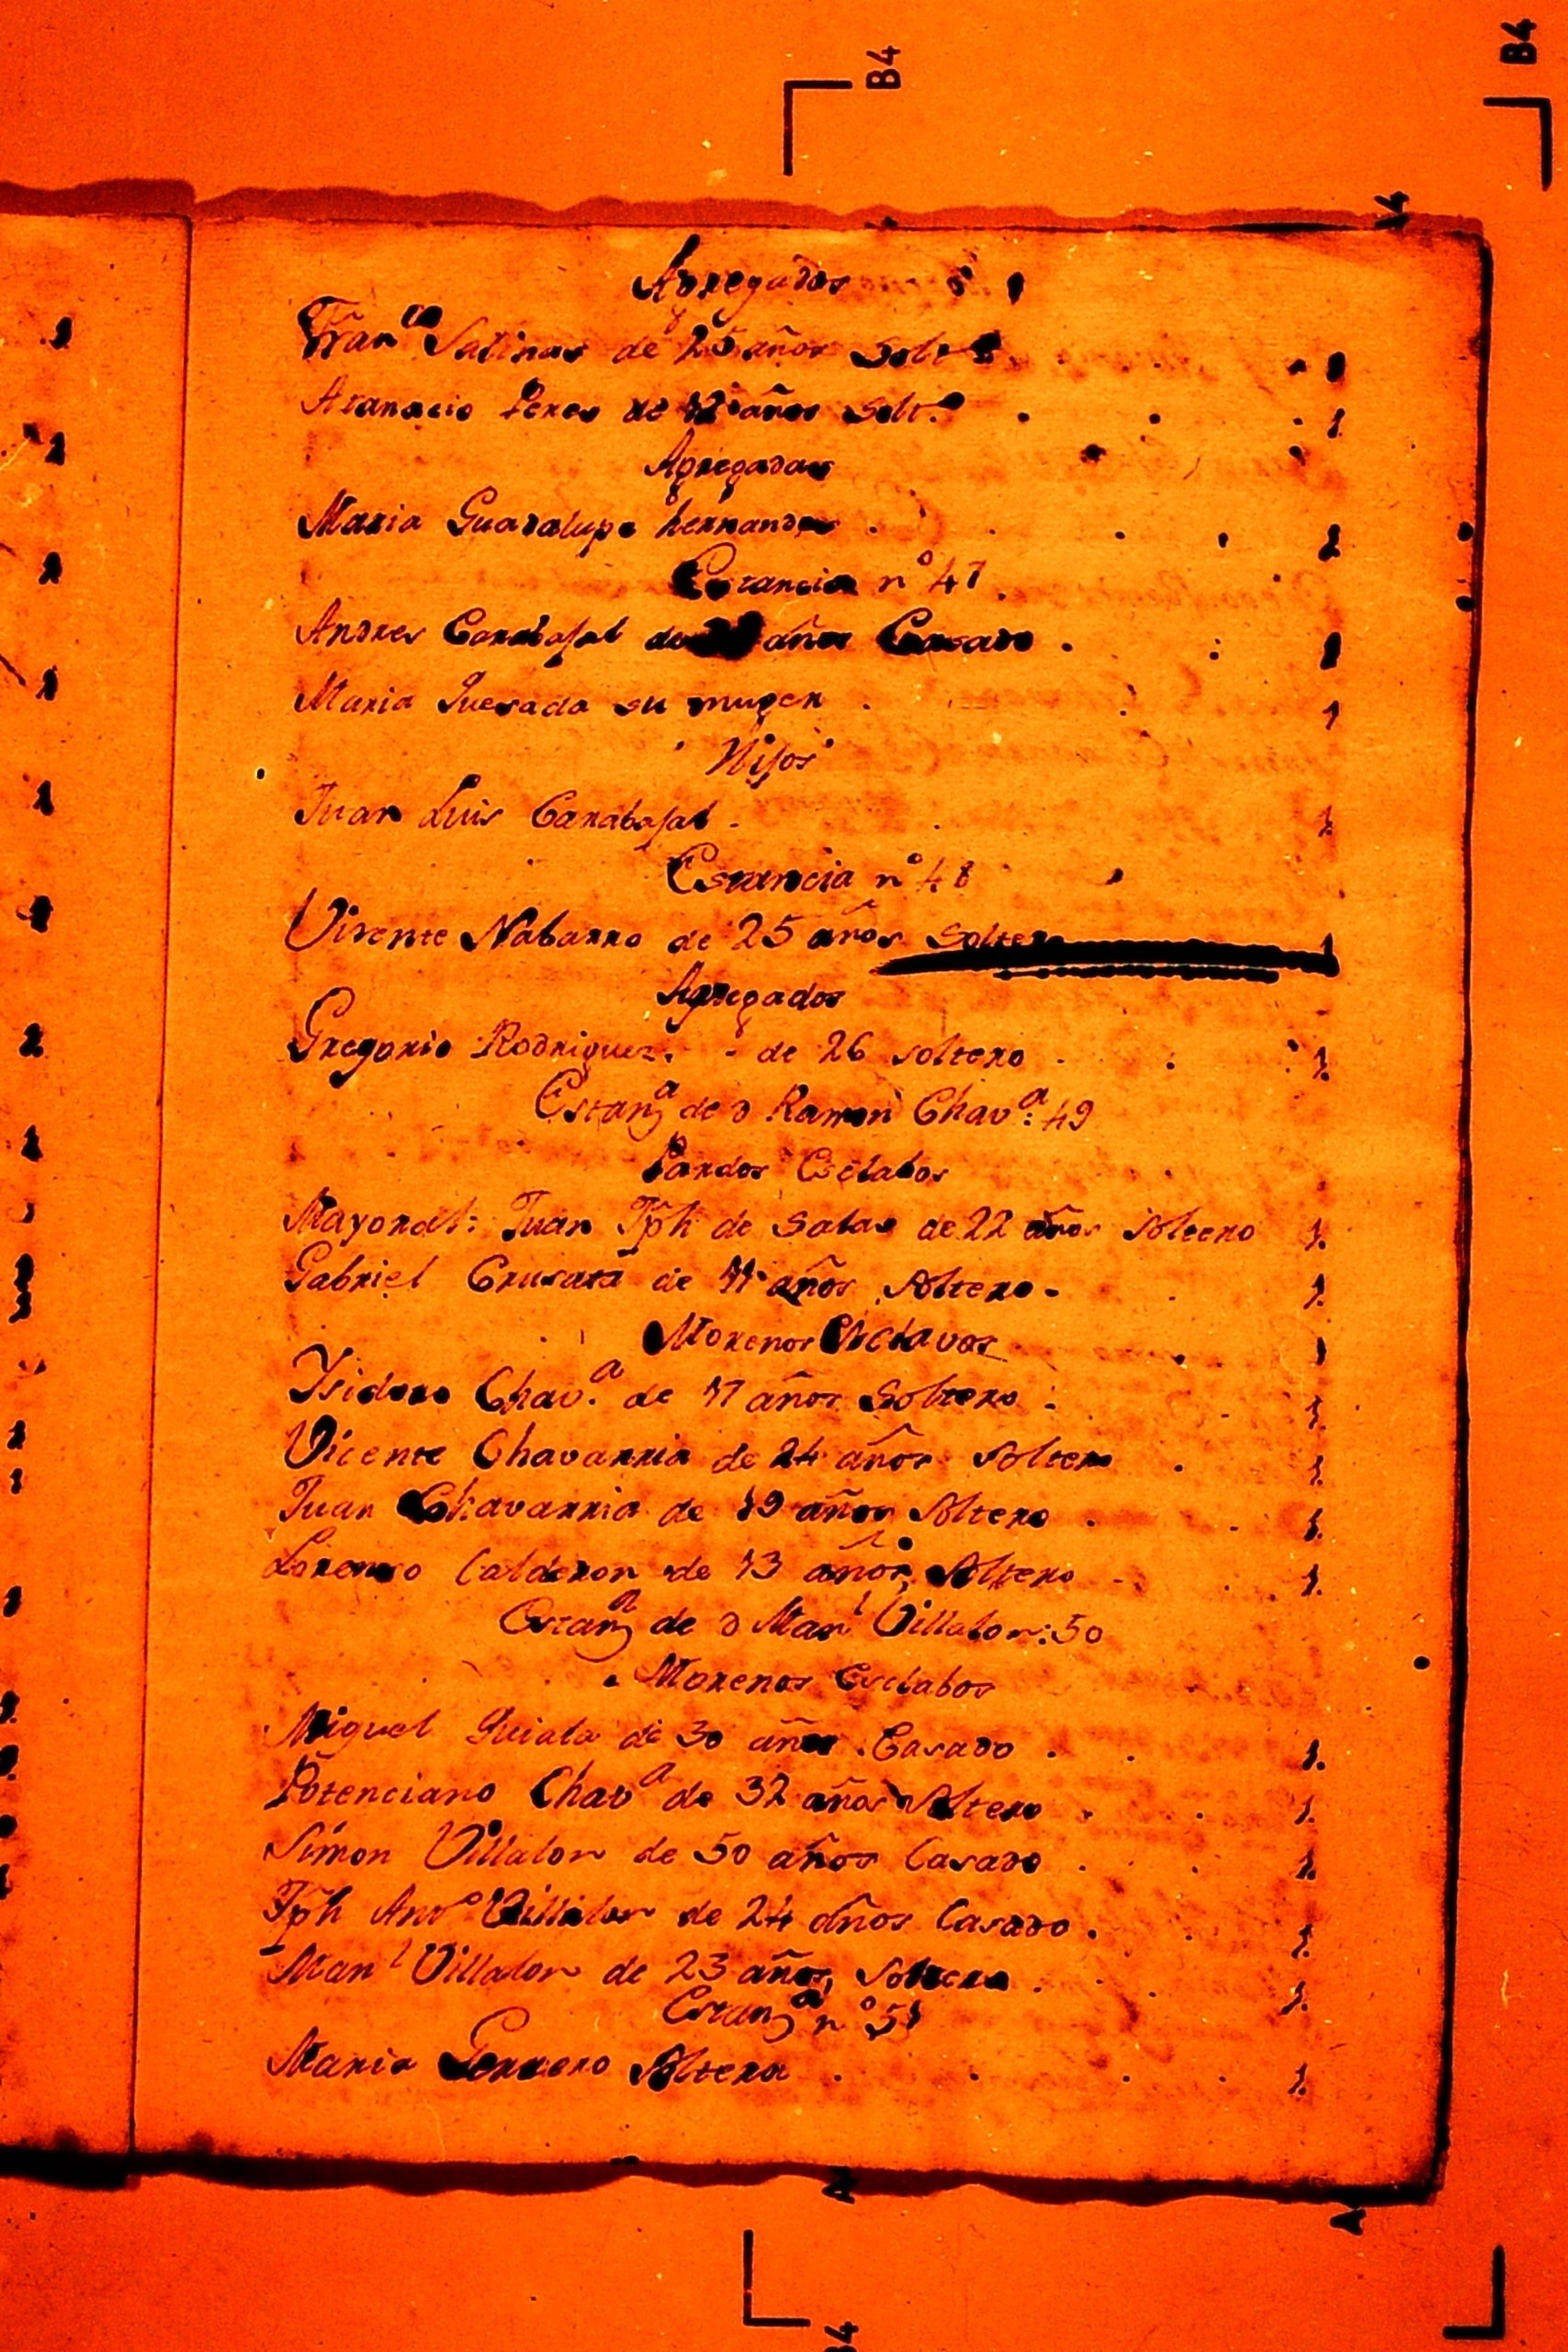 B4
B4
Agregados
Fran.co Salinas de 25 años Solt.o
Atanacio Peres de 12 años Solt.o . . . 1
Agregadas
Maria Guadalupe hernandes . . . . 1
Estancia n.o 47.
Andres Carabajal de años Casado . : 1
Maria Quesada su muger . 1
Hijos
Juan Luis Carabajal . 1
Estancia n.o 48
Visente Nabarro de 25 años Soltero 1
Agregados
Gregorio Rodriguez. - de 26 soltero . . 1.
Estanz.a de D Ramon Chav.a: 49
Pardos Esclabos
Mayoral: Juan Jph de Salas de 22 años Soltero 1.
Gabriel Crusata de 11 años Soltero . 1.
Morenos Esclavos
Ysidoro Chav.a de 17 años Soltero . 1.
Vicente Chavarria de 24 años Soltero . 1.
Juan Chavarria de 19 años Soltero . 1.
Lorenso Calderon de 13 años Soltero . 1.
Estanz.a de D Man.l Villalon: 50
Morenos Esclabos
Miguel de 30 años Casado . . 1.
Potenciano Chav.a de 32 años Soltero . . 1.
Simon Villalon de 50 años Casado . . 1.
Jph Ant.o Villalon de 24 años Casado . . 1.
Man.l Villalon de 23 años, Soltero . . 1.
Estanz.a n.o 51
Maria Gerrero Soltera . . . . 1.